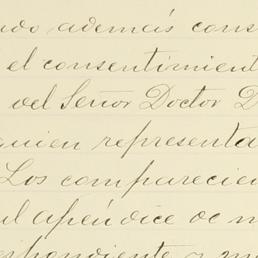 ndo además cons
el consentimient
del Señor Doctor D
quien representa
Los comparecie
al apéndice de m
espondiente a m